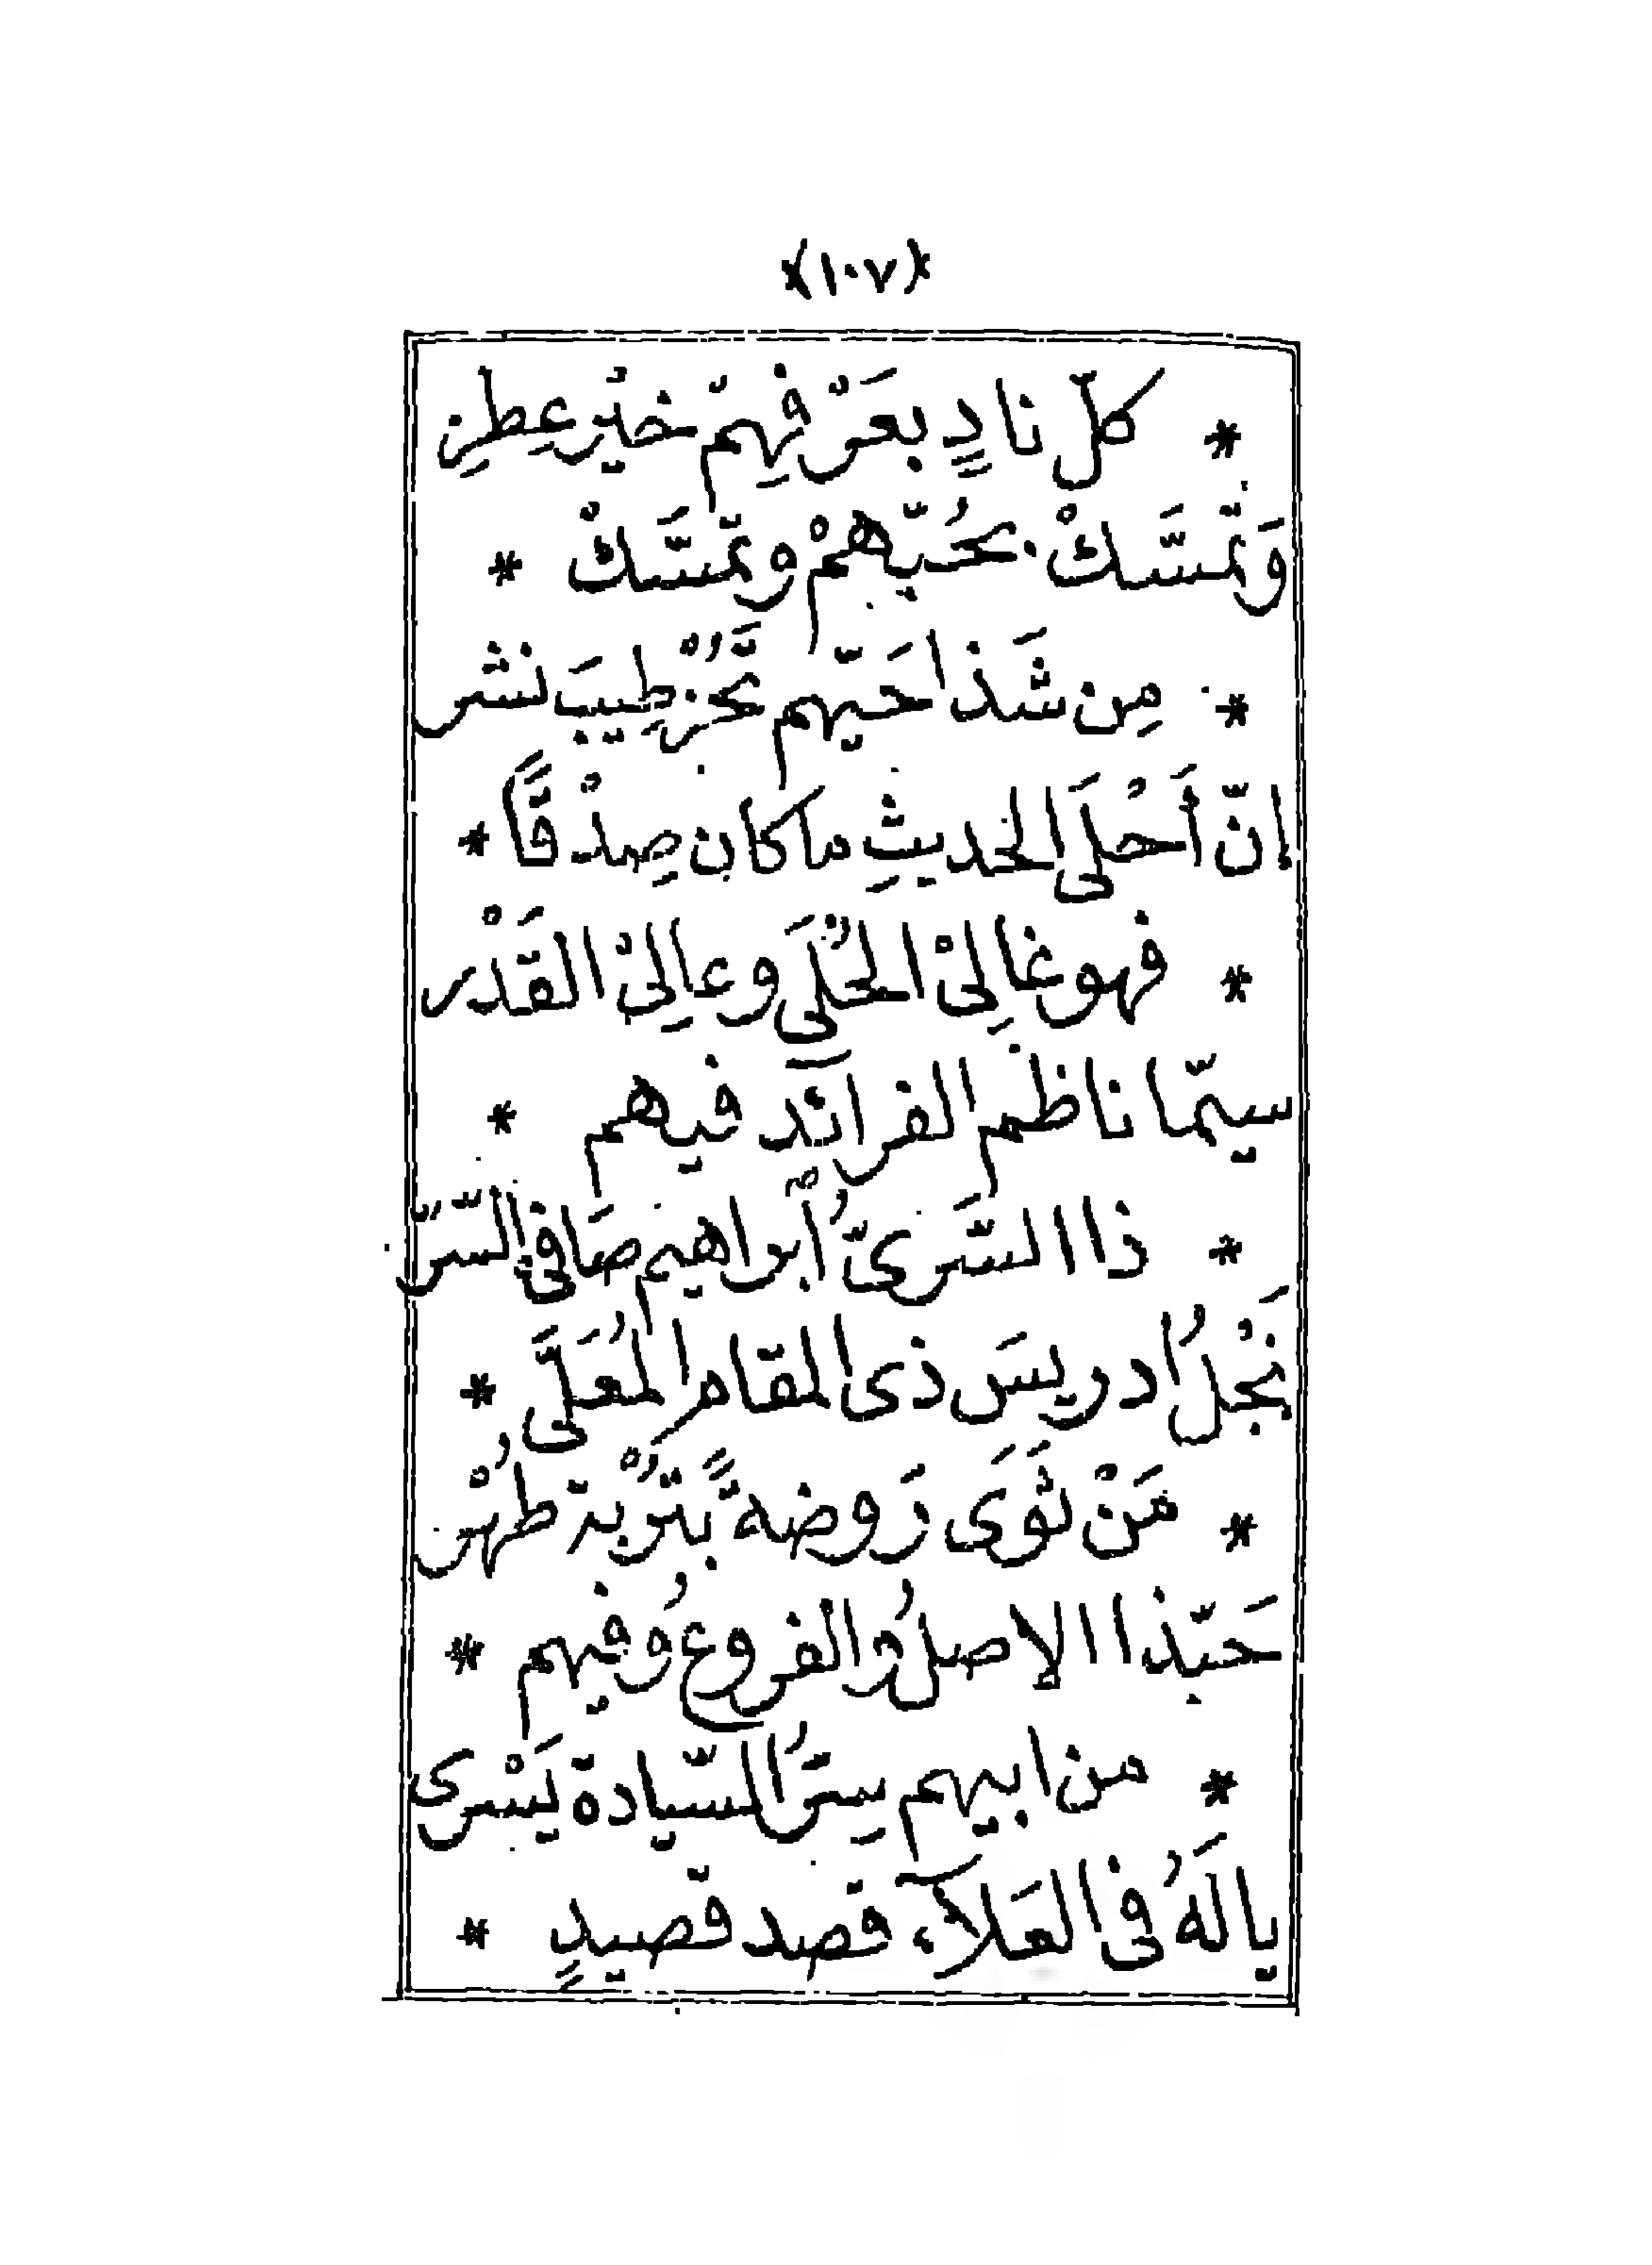 ﴿١٠٧﴾
* كل نادٍ بعَرْفِهِمْ خيْر عِطرِ
وَتمسَّكْ بحُبّهمْ وتمسَّكْ *
* مِن شَذا حَيّهم تَحُزْ طِيبَ نشر
إنّ أَحْلَى الحديثِ ما كان صِدْقًا *
* فهو غالِىْ الحُلَى وعالِىْ القَدْر
سيمّا ناظم الفرائد فيهم *
* ذا السَّرىّ أبراهيم صَافى السّرّ
نَجْلُ ادريسَ ذى المقام المُعَلَّى *
* مَنْ ثَوَى رَوضةً بتُرْبة طُهْر
حَبّذا الاصلُ والفروعُ وفيهم *
* من ابيهم سِرُّ السّيادة يَسْرى
يالَهُ فى العَلآء قصد قصيدٍ *